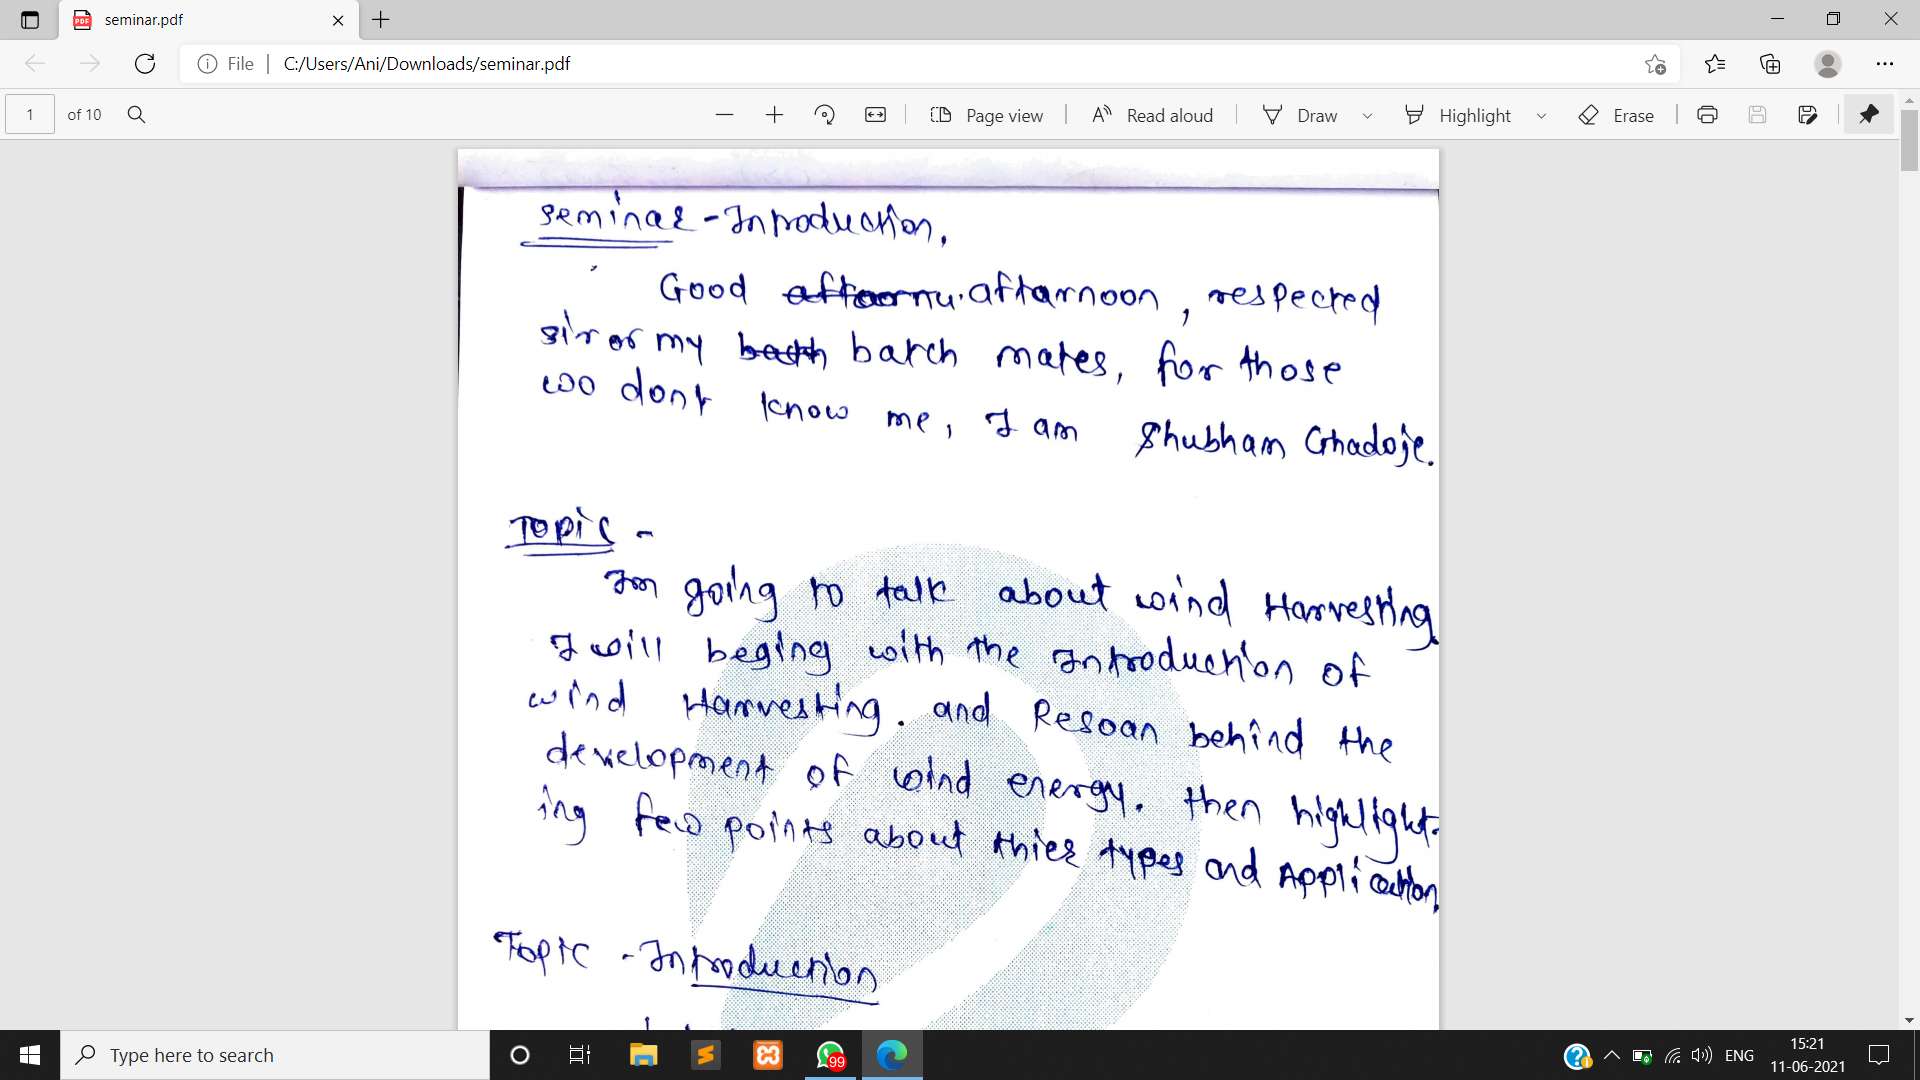 seminar.pdf
File
C:/Users/Ani/Downloads/seminar.pdf
1 of 10
Page view
Read aloud
Draw
Highlight
Erase
Seminar - Introduction.
Good aftoornu. aftarnoon, respected
sir or my bathh batch mates, for those
woo dont know me, I am Shubham Ghadoje.
Topic -
Im going to talk about wind Harvesting
I will beging with the Introduction of
wind Harvesting. and Resoan behind the
development of wind energy. then highlight-
ing few points about thier types and Application.
Topic - Introduction
Type here to search
99
ENG
15:21
11-06-2021